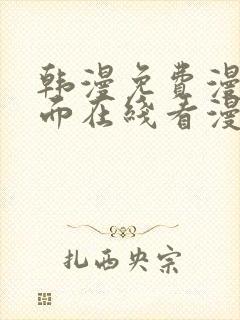 韩漫免费漫
而在线看漫
扎西央宗